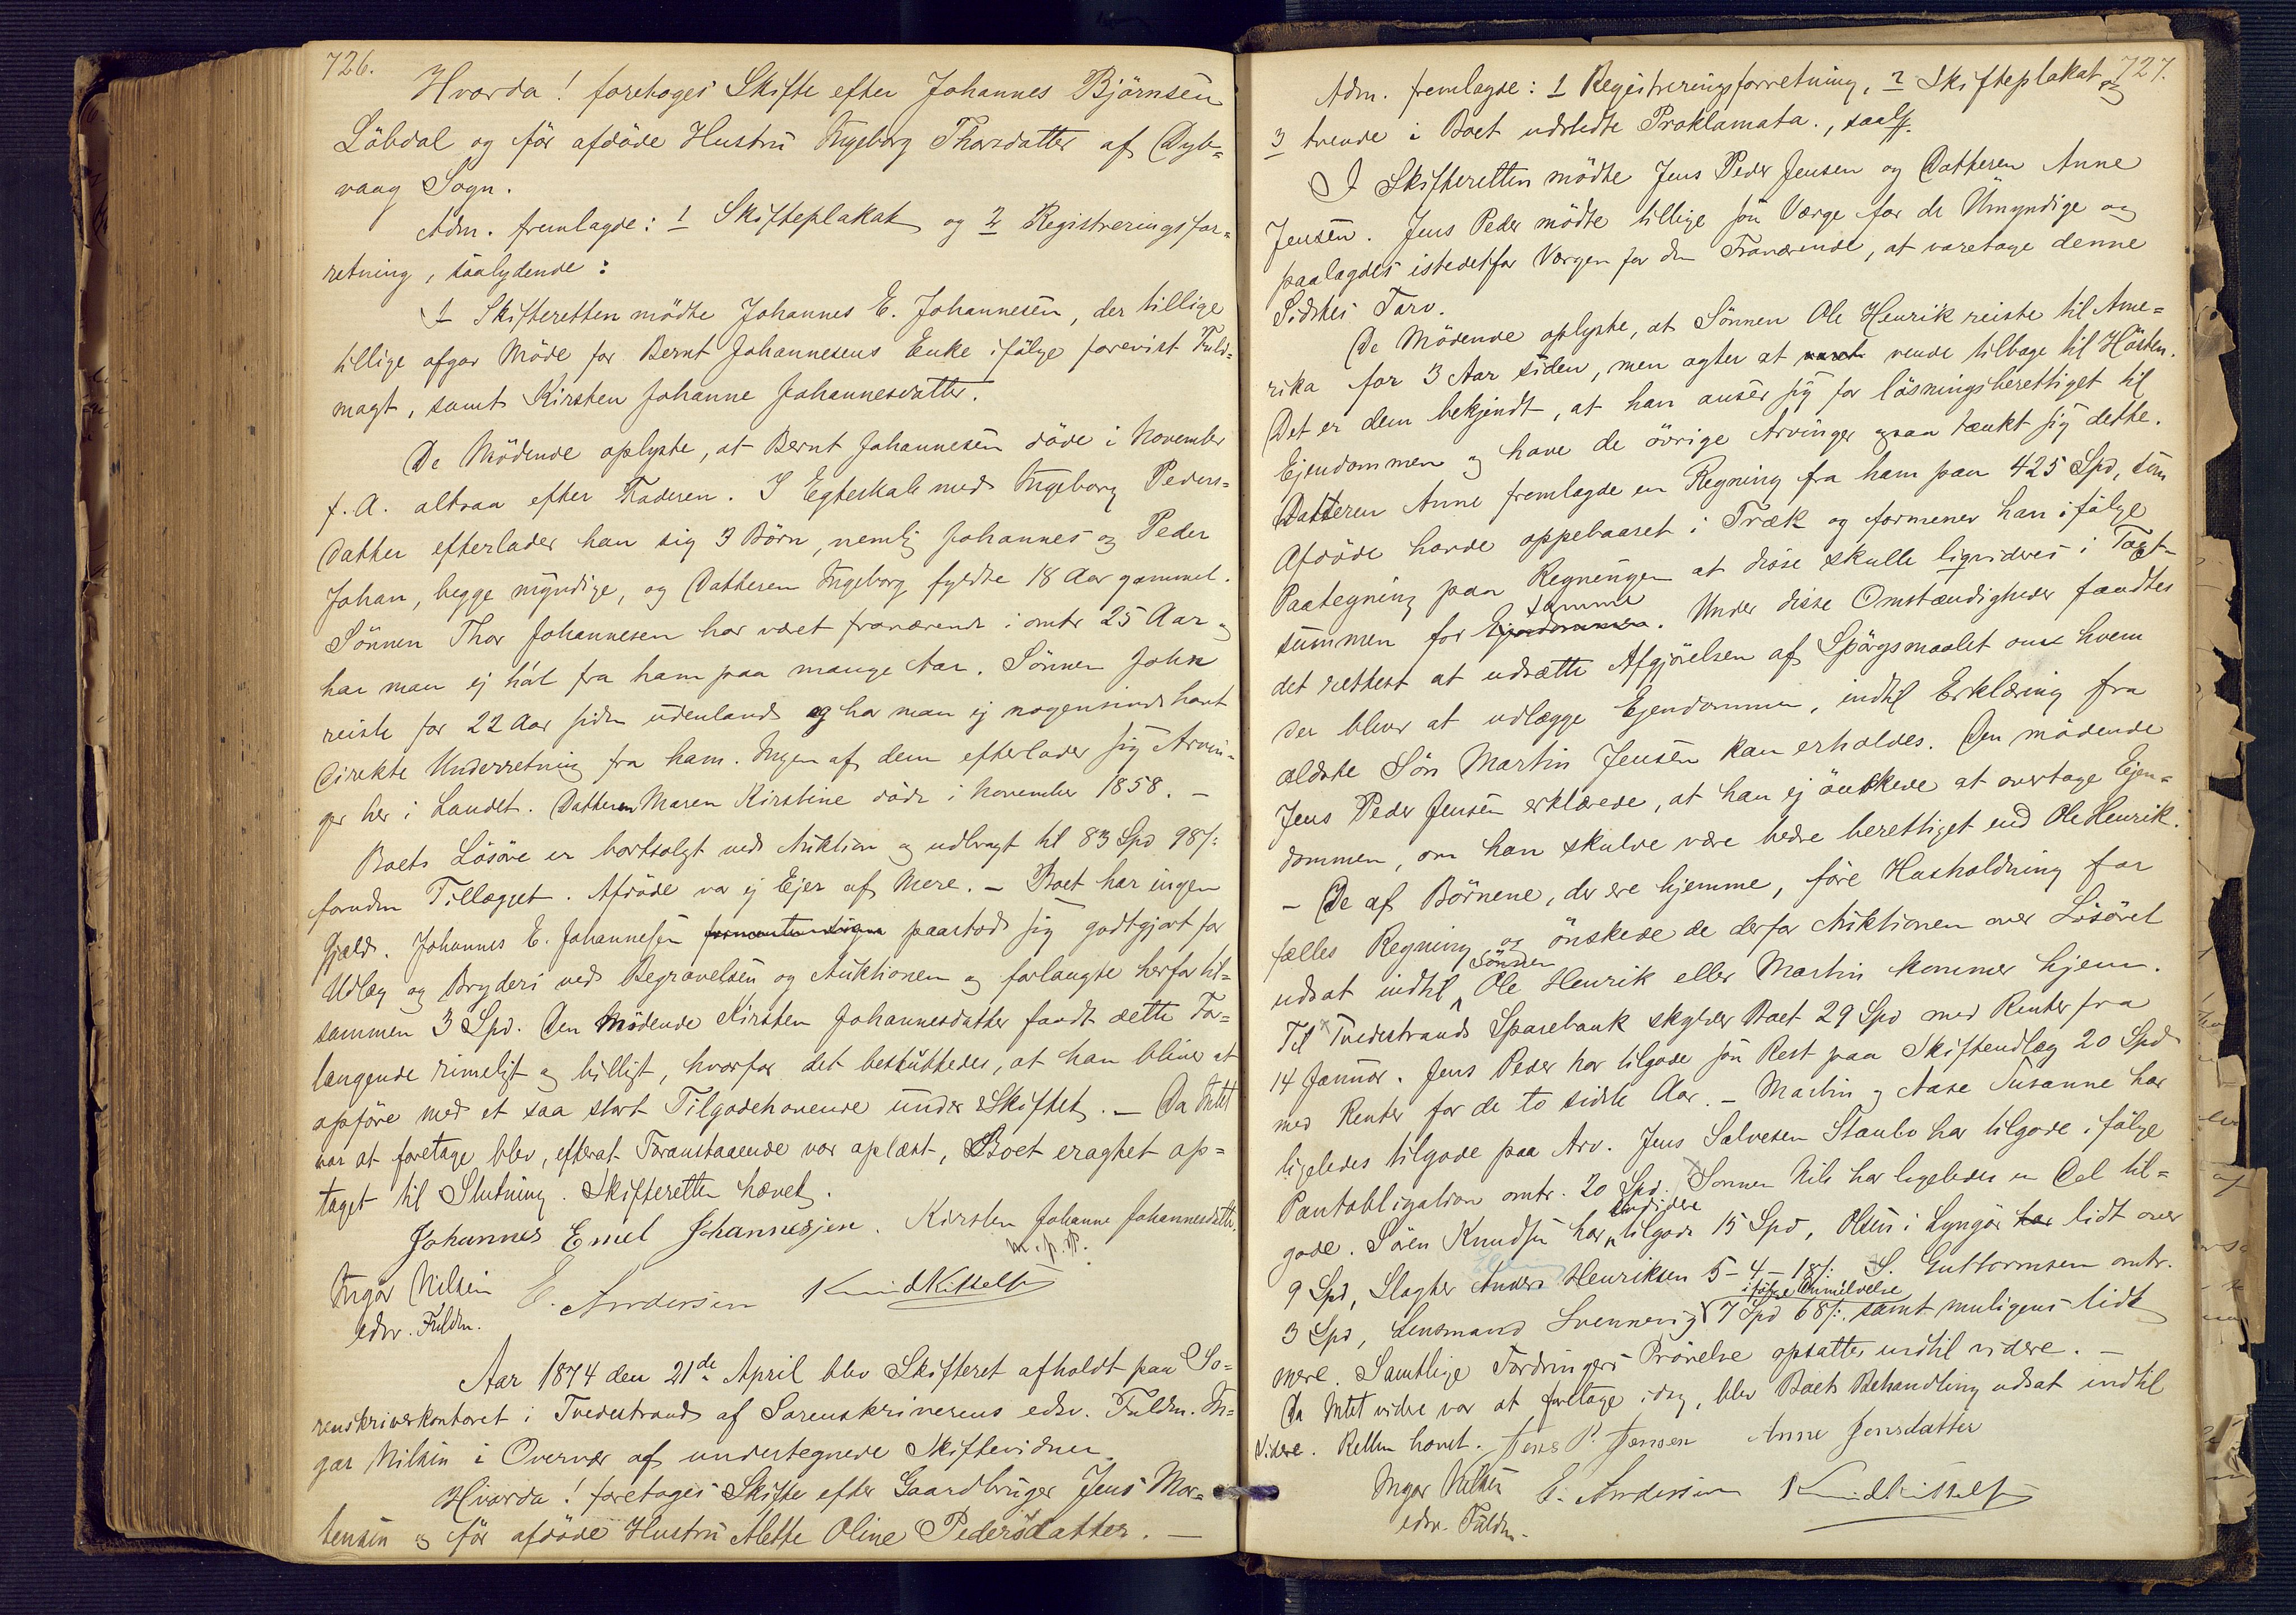 726.
Hvorda! foretoges Skifte efter Johannes Bjørnsen
Löbdal og før afdøde Hustru Ingeborg Thorsdatter af Dybe=
vaag Sogn.
Adm. fremlagde: 1 Skifteplakat og 2 Registreringsfor=
retning, saalydende:
I Skifteretten mødte Johannes E. Johannesen, der tillige
tillige afgav Møde for Bernt Johannesens Enke ifølge forevist Fuld=
magt, samt Kirsten Johanne Johannesdatter.
De Mødende oplyste, at Bernt Johannesen døde i November
f. A. altsaa efter Faderen. I Egteskab med Ingeborg Peders=
datter efterlader han sig 3 Børn, nemlig Johannes og Peder
Johan, begge myndige, og Datteren Ingeborg fyldte 18 Aar gammel.
Sønnen Thor Johannesen har været fraværende i omtr 25 Aar og
har man ej hört fra ham paa mange Aar. Sønnen John
reiste for 22 Aar siden udenlands og har man ej nogensinde havt
direkte Underretning fra ham. Ingen af dem efterlader sig Arvin=
ger her i Landet. Datteren Maren Kirstine døde i November 1858. —
Boets Løsøre er bortsolgt ved Auktion og udbragt til 83 Spd 98 ß:
foruden Tillægget. Afdøde var ej Ejer af Mere. — Boet har ingen
Gjæld. Johannes E. Johannesen paastod sig godtgjort for
Udlæg og Bryderi ved Begravelsen og Auktionen og forlangte herfor til=
sammen 3 Spd. Den Mødende Kirsten Johannesdatter fandt dette For=
langende rimeligt og billigt, hvorfor det besluttedes, at han bliver at
opføre med et saa stort Tilgodehavende under Skiftet. — Da Intet
var at foretage blev, efterat Foranstaaende var oplæst, Boet eragtet op=
taget til Slutning. Skifteretten hævet.
Johannes Emel Johannesjen. Kirsten Johanne Johannesdatter
m. p. P.
Ingar Nilsen E. Andersen Knud Kittelsen
edsv. Fuldm.
Aar 1874 den 21de April blev Skifteret afholdt paa So=
renskriverkontoret i Tvedestrand af Sorenskriverens edsv. Fuldm. In=
gar Nilsen i Overvær af undertegnede Skiftevidner
Hvorda! foretoges Skifte efter Gaardbruger Jens Mor=
tensen og før afdøde Hustru Alette Oline Pedersdatter. —
727.
Adm. fremlagde: 1 Registreringsforretning, 2 Skifteplakat og
3 trende i Boet udstedte Proklamata., saal.
I Skifteretten mødte Jens Peder Jensen og Datteren Anne
Jensen. Jens Peder mødte tillige som Værge for de Umyndige og
paalagdes istedetfor Værgen for den Fraværende, at varetage denne
Sidstes Tarv.
De Mødende oplyste, at Sønnen Ole Henrik reiste til Ame=
rika for 3 Aar siden, men agter at vende tilbage til Høsten.
Det er dem bekjendt, at han anser sig for løsningsberettiget til
Ejendommen og have de øvrige Arvinger ogsaa tænkt sig dette.
Datteren Anne fremlagde en Regning fra ham paa 425 Spd, som
Afdøde havde oppebaaret i Træk og formener han ifølge
Paategning paa Regningen at disse skulle liqvideres i Taxt=
summen for Ejendommen samme. Under disse Omstændigheder fandtes
det rettest at udsætte Afgjørelsen af Spørgsmaalet om hvem
der bliver at udlægge Ejendommen, indtil Erklæring fra
ældste Søn Martin Jensen kan erholdes. Den mødende
Jens Peder Jensen erklærede, at han ej ønskede at overtage Ejen=
dommen, om han skulde være bedre berettiget end Ole Henrik.
— De af Børnene, der ere hjemme, føre Husholdning for
fælles Regning og ønskede de derfor Auktionen over Løsøret
udsat indtil Sønnen Ole Henrik eller Martin kommer hjem.
Til Tvedestrands Sparebank skylder Boet 29 Spd med Renter fra
14 Januar. Jens Peder har tilgode som Rest paa Skifteudlæg 20 Spd
med Renter for de to sidste Aar. — Martin og Aase Susanne har
ligeledes tilgode paa Arv. Jens Salvesen Staubo har tilgode ifølge
Pantobligation omtr. 20 Spd. Sønnen Nils har ligeledes en Del til=
gode. Søren Knudsen har endvidere tilgode 15 Spd, Olsen i Lyngør har lidt over
9 Spd, Slagter Anders Henriksen 5 - 4 - 18 ß: S. Guttormsen omtr.
3 Spd, Lensmand Svennevig ifølge Anmeldelse 7 Spd 68 ß: samt muligens lidt
mere. Samtlige Fordringers Prøvelse opsattes indtil videre. —
Da Intet videre var at foretage idag, blev Boets Behandling udsat indtil
videre. Retten hævet. Jens P. Jensen Anne Jensdatter
Ingar Nilsen E. Andersen Knud Kittelsen
edsv. Fuldm.